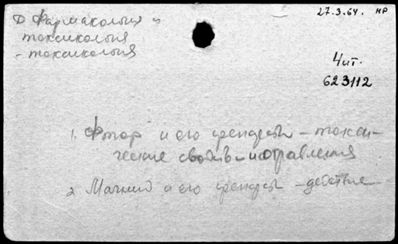 Фармакология и
токсикология
- токсикология
27.3.64. НР
Чит.
623112
1. Фтор и его - токси-
ческие свойств - и отравления
2. Магний и его - действие